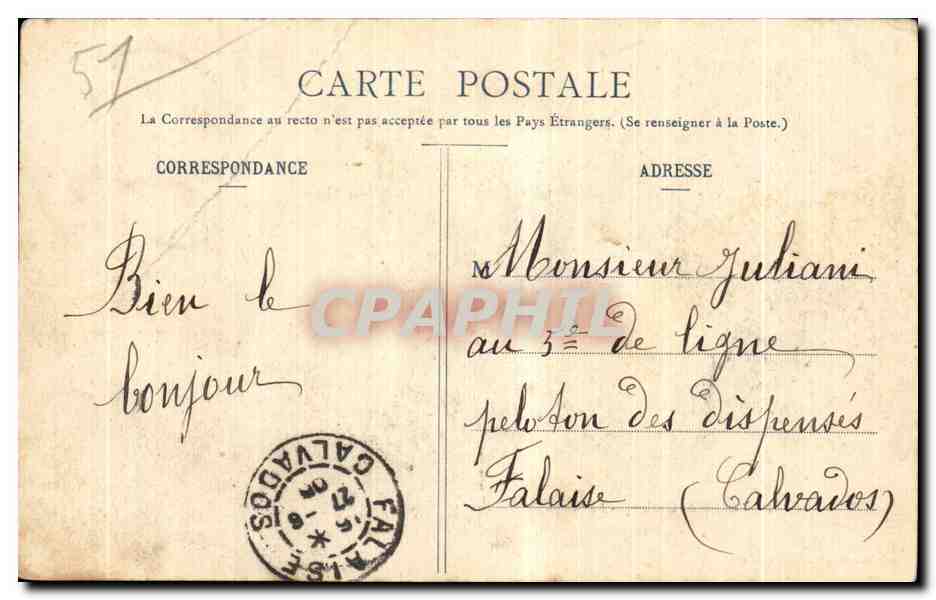 51
CARTE POSTALE
La Correspondance au recto n'est pas acceptée par tous les Pays Étrangers. (Se renseigner à la Poste.)
CORRESPONDANCE
Bien le
bonjour
ADRESSE
M Monsieur Juliani
au 5e de ligne
peloton des dispensés
Falaise (Calvados)
FALAISE
CALVADOS
CPAPHIL